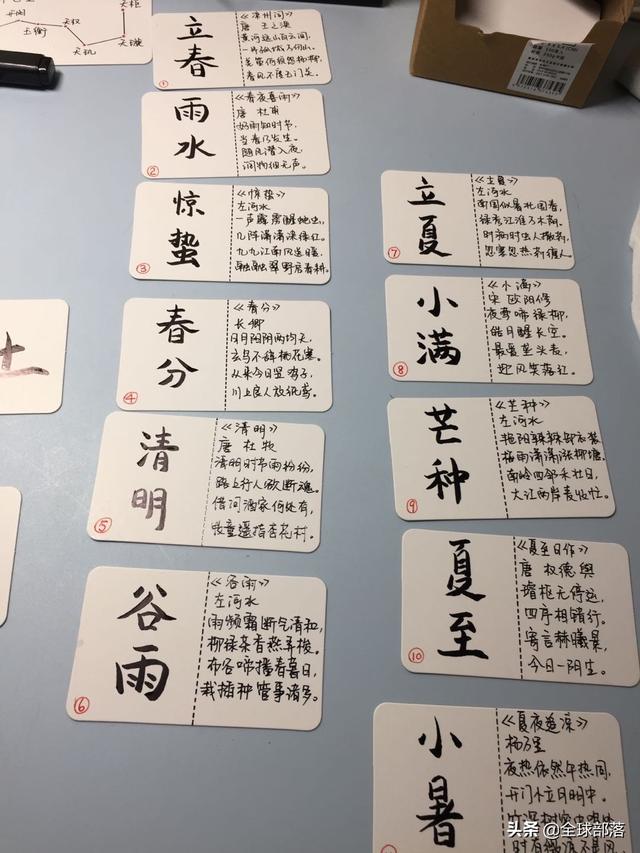 开阳
玉衡
天权
天枢
天玑
天璇
立春
①
《凉州词》
唐 王之涣
黄河远上白云间，
一片孤城万仞山。
羌笛何须怨杨柳，
春风不度玉门关。
雨水
②
《春夜喜雨》
唐 杜甫
好雨知时节，
当春乃发生。
随风潜入夜，
润物细无声。
惊蛰
③
《惊蛰》
左河水
一声霹雳醒蛇虫，
几阵潇潇染绿红。
九九江南风送暖，
融融翠野启春耕。
春分
④
《春分》
长卿
日月阳阴两均天，
玄鸟不辞桃花寒。
从来今日竖鸡子，
川上良人放纸鸢。
清明
⑤
《清明》
唐 杜牧
清明时节雨纷纷，
路上行人欲断魂。
借问酒家何处有，
牧童遥指杏花村。
谷雨
⑥
《谷雨》
左河水
雨频霜断气清和，
柳绿茶香燕弄梭。
布谷啼播春暮日，
栽插种管事诸多。
立夏
⑦
《立夏》
左河水
南国似暑北国春，
绿秀江淮万木荫。
时病时虫人撒药，
忽寒忽热药搪人。
小满
⑧
《小满》
宋 欧阳修
夜莺啼绿柳，
皓月醒长空。
最爱垄头麦，
迎风笑落红。
芒种
⑨
《芒种》
左河水
艳阳辣辣卸衣装，
梅雨潇潇涨柳塘。
南岭四邻禾壮日，
大江两岸麦收忙。
夏至
⑩
《夏至日作》
唐 权德舆
璿枢无停运，
四序相错行。
寄言赫曦景，
今日一阴生。
小暑
《夏夜追凉》
杨万里
夜热依然午热同，
开门小立月明中。
竹深树密虫鸣处
时有微凉不是风
头条 @全球部落